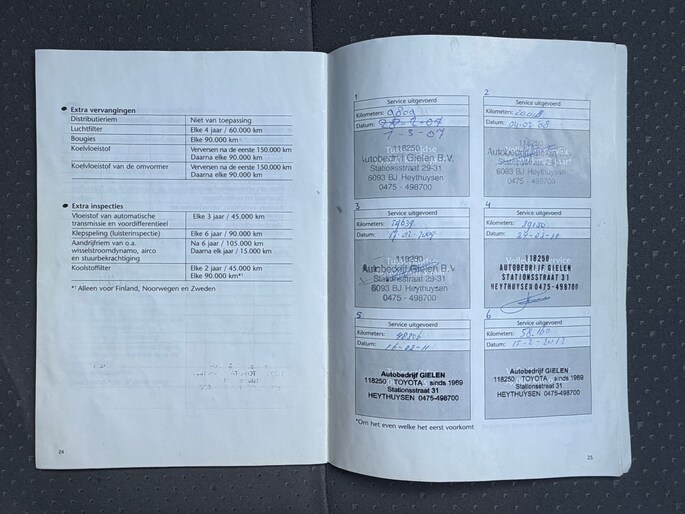 Extra vervangingen
Distributieriem Niet van toepassing
Luchtfilter Elke 4 jaar / 60.000 km
Bougies Elke 90.000 km
Koelvloeistof Verversen na de eerste 150.000 km
Daarna elke 90.000 km
Koelvloeistof van de omvormer Verversen na de eerste 150.000 km
Daarna elke 90.000 km
Extra inspecties
Vloeistof van automatische Elke 3 jaar / 45.000 km
transmissie en voordifferentieel
Klepspeling (luisterinspectie) Elke 6 jaar / 90.000 km
Aandrijfriem van o.a. Na 6 jaar / 105.000 km
wisselstroomdynamo, airco Daarna elk jaar / 15.000 km
en stuurbekrachtiging
Koolstoffilter Elke 2 jaar / 45.000 km
Elke 90.000 km*¹
*¹ Alleen voor Finland, Noorwegen en Zweden
24
1
Service uitgevoerd
Kilometers: 9809
Datum:
1-3-07
118250
Autobedrijf Gielen B.V.
Stationsstraat 29-31
6093 BJ Heythuysen
0475 - 498700
2
Service uitgevoerd
Kilometers:
Datum:
118250
Autobedrijf
Stationsstraat
6093 BJ Heythuysen
0475 - 498700
3
Service uitgevoerd
Kilometers:
Datum:
118250
Autobedrijf Gielen B.V.
Stationsstraat 29-31
6093 BJ Heythuysen
0475 - 498700
4
Service uitgevoerd
Kilometers: 39150
Datum:
118250
AUTOBEDRIJF GIELEN
STATIONSSTRAAT 31
HEYTHUYSEN 0475-498700
5
Service uitgevoerd
Kilometers:
Datum:
Autobedrijf GIELEN
118250 TOYOTA sinds 1969
Stationsstraat 31
HEYTHUYSEN 0475-498700
6
Service uitgevoerd
Kilometers: 58.160
Datum: 15-2-2012
Autobedrijf GIELEN
118250 TOYOTA sinds 1969
Stationsstraat 31
HEYTHUYSEN 0475-498700
*Om het even welke het eerst voorkomt
25